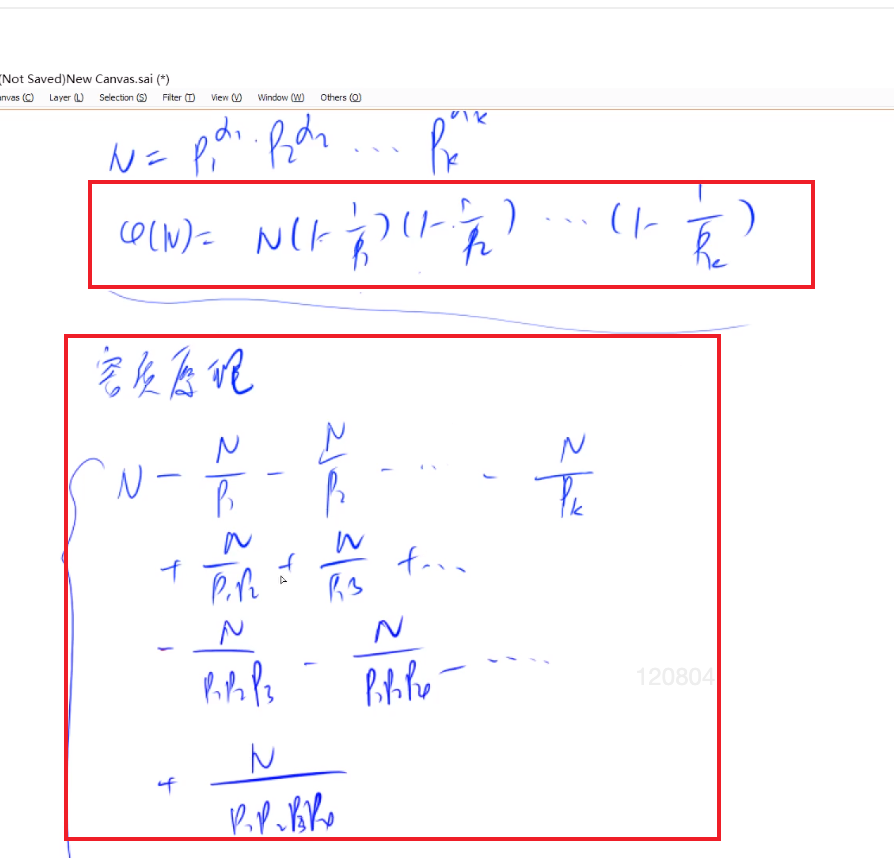 (Not Saved)New Canvas.sai (*)
nvas (C) Layer (L) Selection (S) Filter (T) View (V) Window (W) Others (O)
N = P₁^α₁ · P₂^α₂ ... Pₖ^αₖ
φ(N) = N(1-1/P₁)(1-1/P₂) ... (1-1/Pₖ)
容斥原理
N - N/P₁ - N/P₂ - ... - N/Pₖ
+ N/P₁P₂ + N/P₁P₃ + ...
- N/P₁P₂P₃ - N/P₁P₂P₄ - ...
120804
+ N/P₁P₂P₃P₄